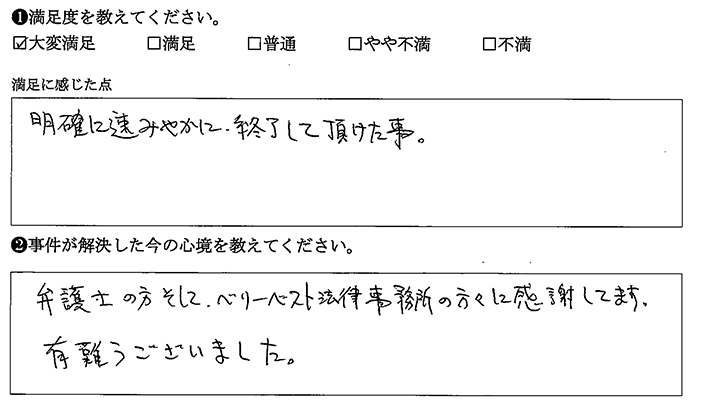 ❶満足度を教えてください。
☑大変満足 □満足 □普通 □やや不満 □不満
満足に感じた点
明確に速みやかに、終了して頂けた事。
❷事件が解決した今の心境を教えてください。
弁護士の方そして、ベリーベスト法律事務所の方々に感謝してます。
有難うございました。